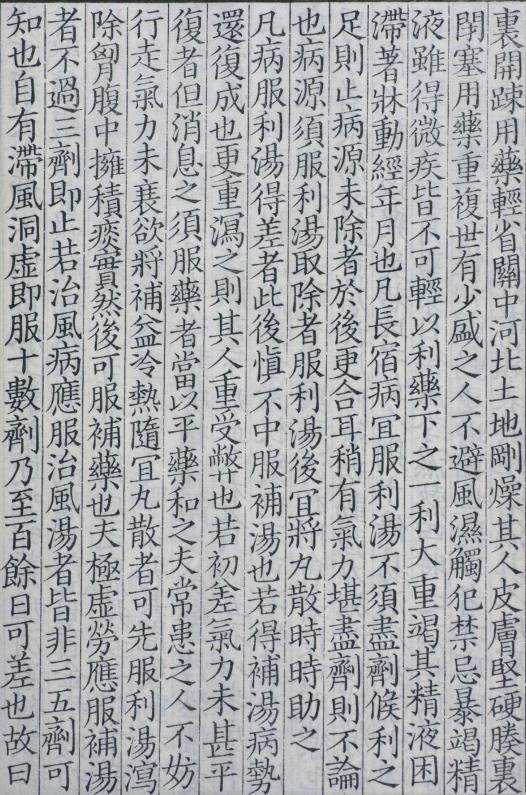 裏開踈用藥輕省關中河北土地剛燥其人皮膚堅硬腠裏
閉塞用藥重複世有少盛之人不避風濕觸犯禁忌暴竭精
液雖得微疾皆不可輕以利藥下之一利大重竭其精液困
滯著牀動經年月也凡長宿病宜服利湯不須盡劑候利之
足則止病源未除者於後更合耳稍有氣力堪盡劑則不論
也病源須服利湯取除者服利湯後宜將丸散時時助之
凡病服利湯得差者此後慎不中服補湯也若得補湯病勢
還復成也更重瀉之則其人重受弊也若初差氣力未甚平
復者但消息之須服藥者當以平藥和之夫常患之人不妨
行走氣力未衰欲將補益冷熱隨宜丸散者可先服利湯瀉
除胷腹中擁積痰實然後可服補藥也夫極虛勞應服補湯
者不過三劑即止若治風病應服治風湯者皆非三五劑可
知也自有滯風洞虛即服十數劑乃至百餘日可差也故曰